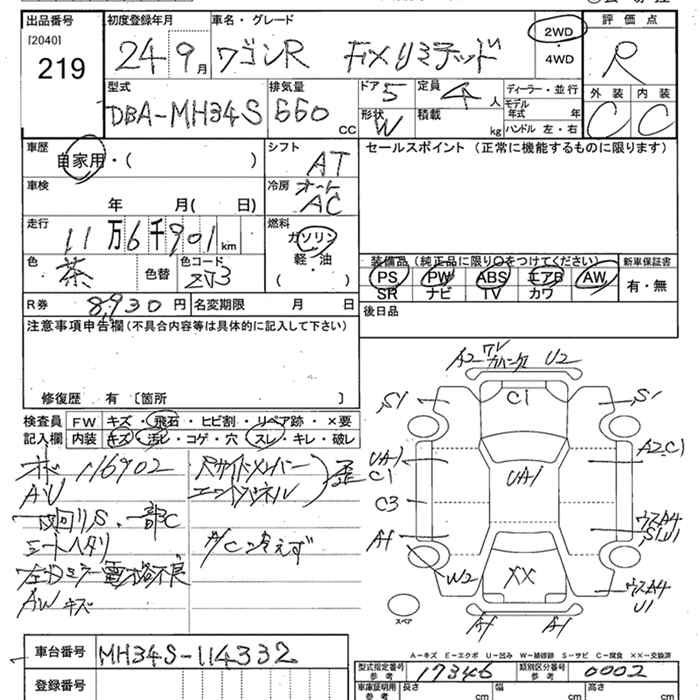 出品番号 初度登録年月 車名・グレード 2WD 評価点
[2040] 24 9月 ワゴンR FXリミテッド ・ R
219 4WD
型式 排気量 ドア 5 定員 4人 ディーラー・並行 外装 内装
DBA-MH34S 660cc 形状 W 積載 kg モデル年式 年 C C
ハンドル 左・右
車歴 シフト セールスポイント(正常に機能するものに限ります)
自家用・( ) AT
車検 冷房 オート
年 月( 日) AC
走行 燃料
11万6千901km ガソリン
色 色コード 軽・油 装備品(純正品に限り○をつけてください) 新車保証書
茶 色替 ZJ3 ( ) PS PW ABS エアB AW 有・無
SR ナビ TV カワ
R券 8,930円 名変期限 月 日 後日品
注意事項申告欄(不具合内容等は具体的に記入して下さい)
修復歴 有 〔箇所 〕
検査員 FW キズ・飛石・ヒビ割・リペア跡・×要
記入欄 内装 キズ・汚レ・コゲ・穴・スレ・キレ・破レ
A2 ワレ U2
S1 C1 S1
UA1 C1 UA1 A2 C1
C3
A1 ウスA4 S1U1
W2 XX ウスA4 U1
A1 A1
スペア
116902 Rサイドメンバー
エンドパネル 歪
下回りS、一部C
シートヘタリ A/C冷えず
左Dミラー電格不良
AWキズ
A-キズ E-エクボ U-凹み W-補修跡 S-サビ C-腐食 XX-交換済
車台番号 MH34S-114332 型式指定番号 参考 17346 類別区分番号 参考 0002
登録番号 車庫証明用 参考 長さ cm 幅 cm 高さ cm